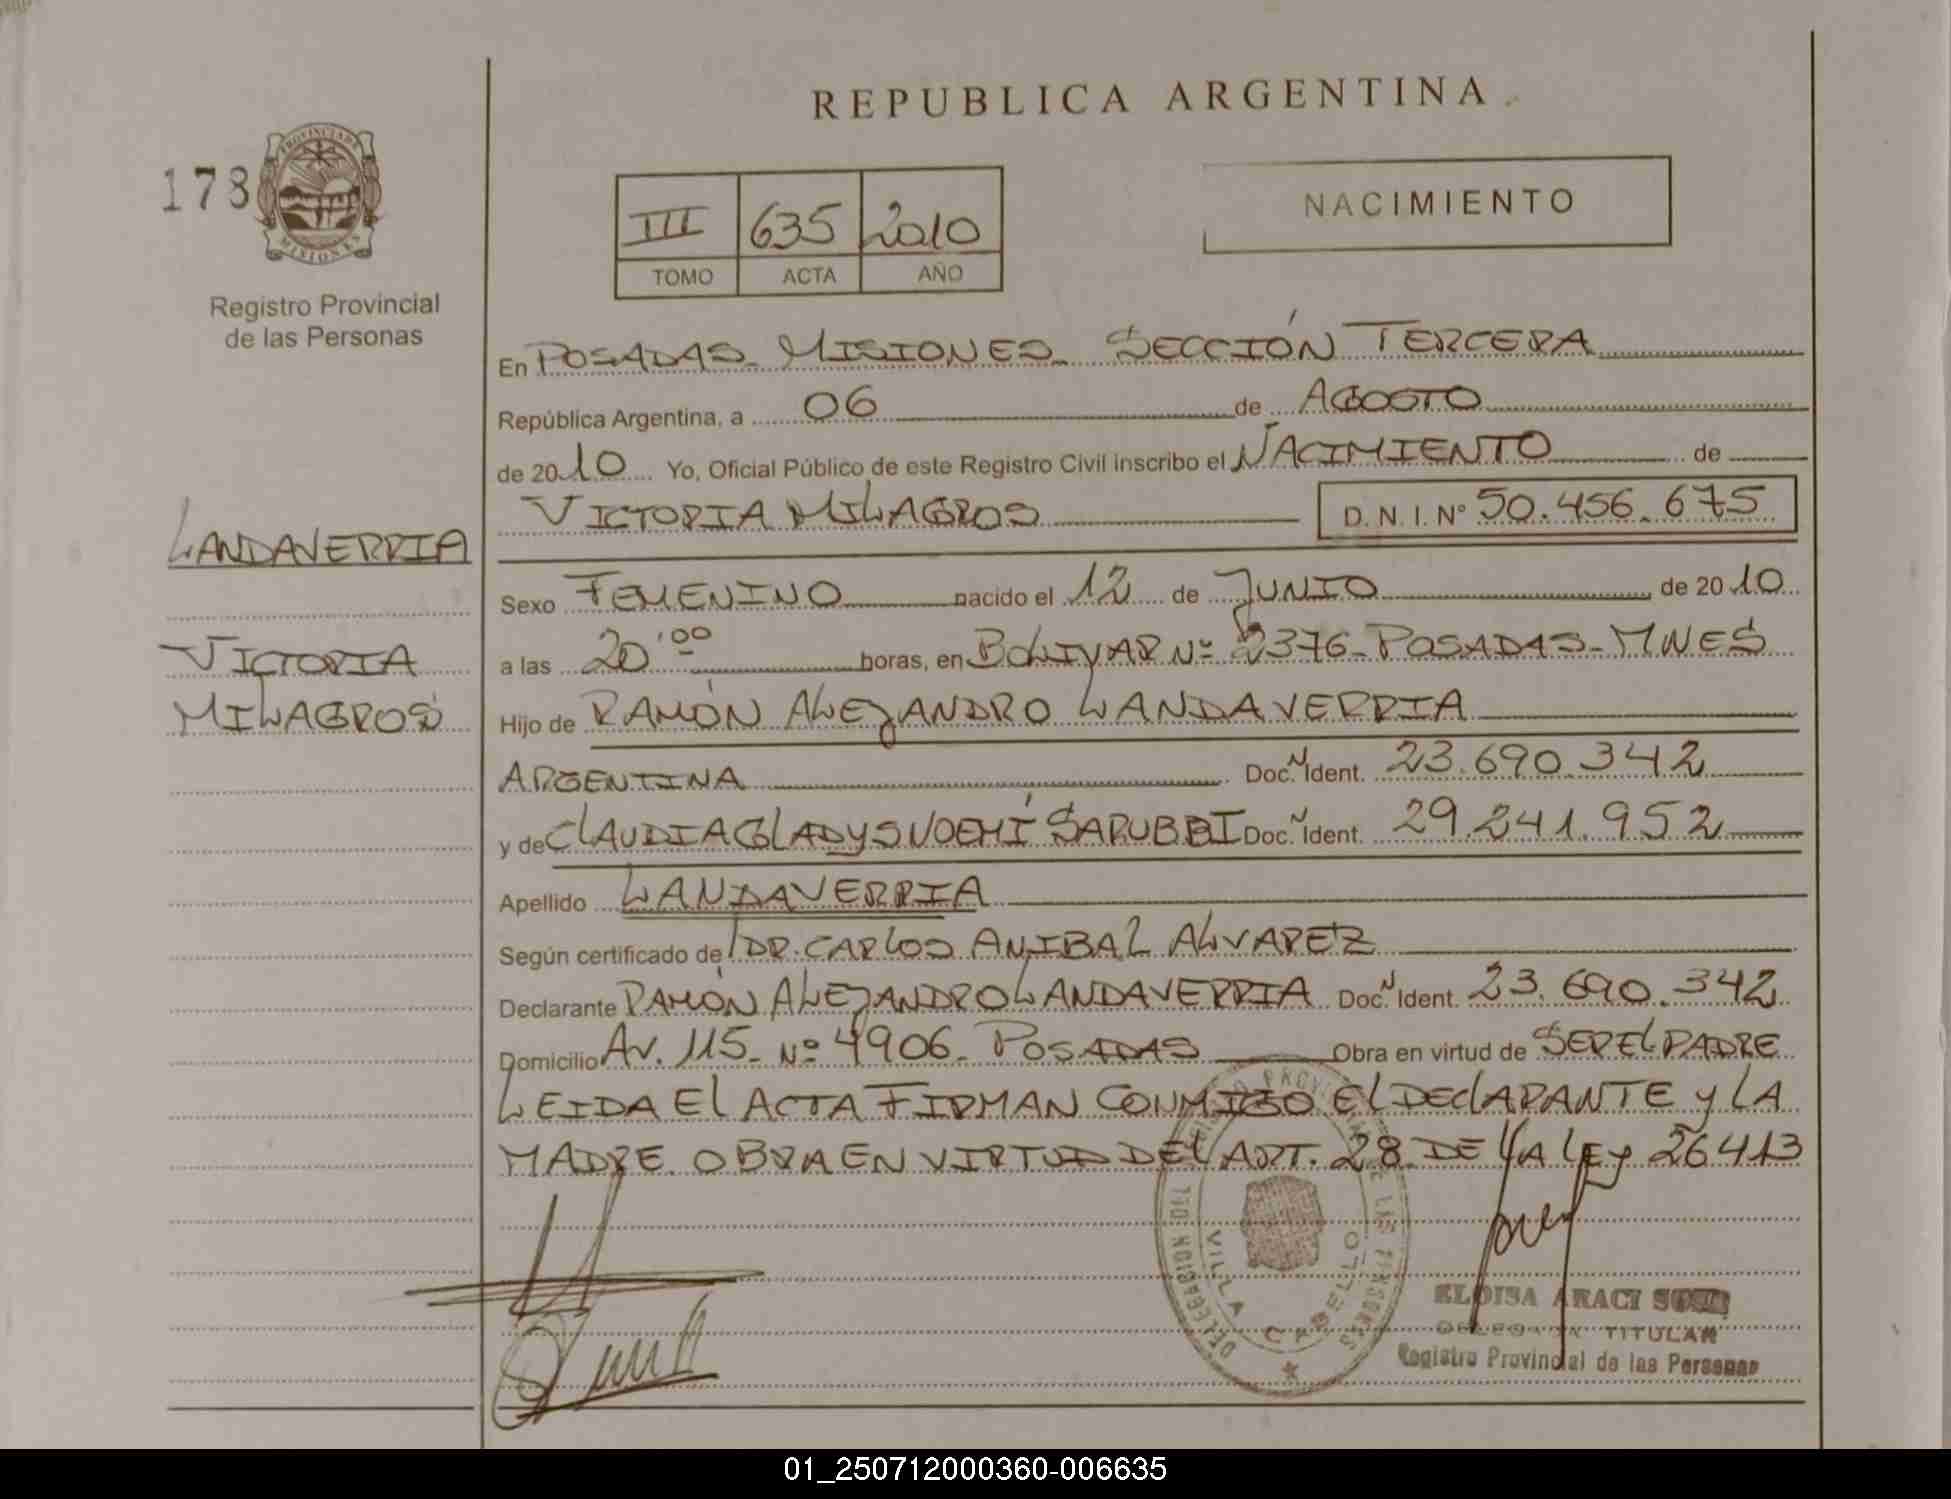 REPUBLICA ARGENTINA
178
PROVINCIA DE
MISIONES
Registro Provincial
de las Personas
III 635 2010
TOMO ACTA AÑO
NACIMIENTO
En POSADAS - MISIONES - SECCIÓN TERCERA
República Argentina, a 06 de AGOSTO
de 2010 Yo, Oficial Público de este Registro Civil inscribo el NACIMIENTO de
VICTORIA MILAGROS D.N.I. Nº 50.456.675
LANDAVERRIA
VICTORIA
MILAGROS
Sexo FEMENINO nacido el 12 de JUNIO de 2010
a las 20:00 horas, en BOLIVAR Nº 2376 - POSADAS - MNES
Hijo de RAMÓN ALEJANDRO LANDAVERRIA
ARGENTINA Doc. Ident. 23.690.342
y de CLAUDIA GLADYS NOEMÍ SARUBBI Doc. Ident. 29.241.952
Apellido LANDAVERRIA
Según certificado de DR. CARLOS ANIBAL ALVAREZ
Declarante RAMÓN ALEJANDRO LANDAVERRIA Doc. Ident. 23.690.342
Domicilio AV. 115 - Nº 4906 - POSADAS Obra en virtud de SER EL PADRE
LEIDA EL ACTA FIRMAN CONMIGO EL DECLARANTE Y LA
MADRE. OBRA EN VIRTUD DEL ART. 28 DE LA LEY 26413
DELEGACION DEL REGISTRO PROVINCIAL DE LAS PERSONAS
VILLA CABELLO
ELOISA ARACI SOSA
DELEGADA TITULAR
Registro Provincial de las Personas
01_250712000360-006635